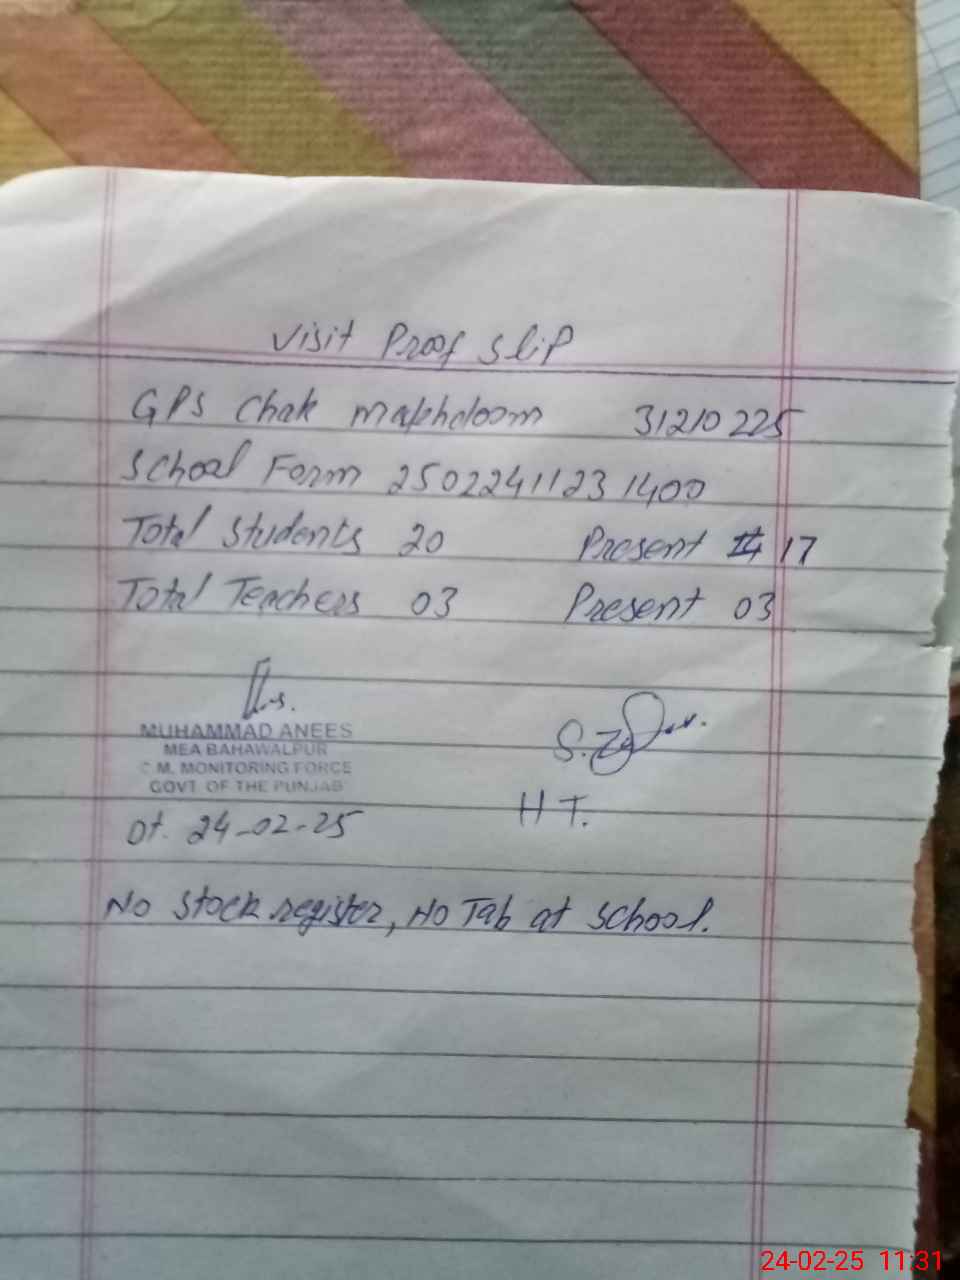 Visit Proof Slip
GPS Chak Makhdoom 31210225
School Form 25022411231400
Total Students 20 Present 17
Total Teachers 03 Present 03
MUHAMMAD ANEES
MEA BAHAWALPUR
C.M. MONITORING FORCE
GOVT OF THE PUNJAB
H T.
Dt. 24-02-25
No Stock register, No Tab at school.
24-02-25 11:31